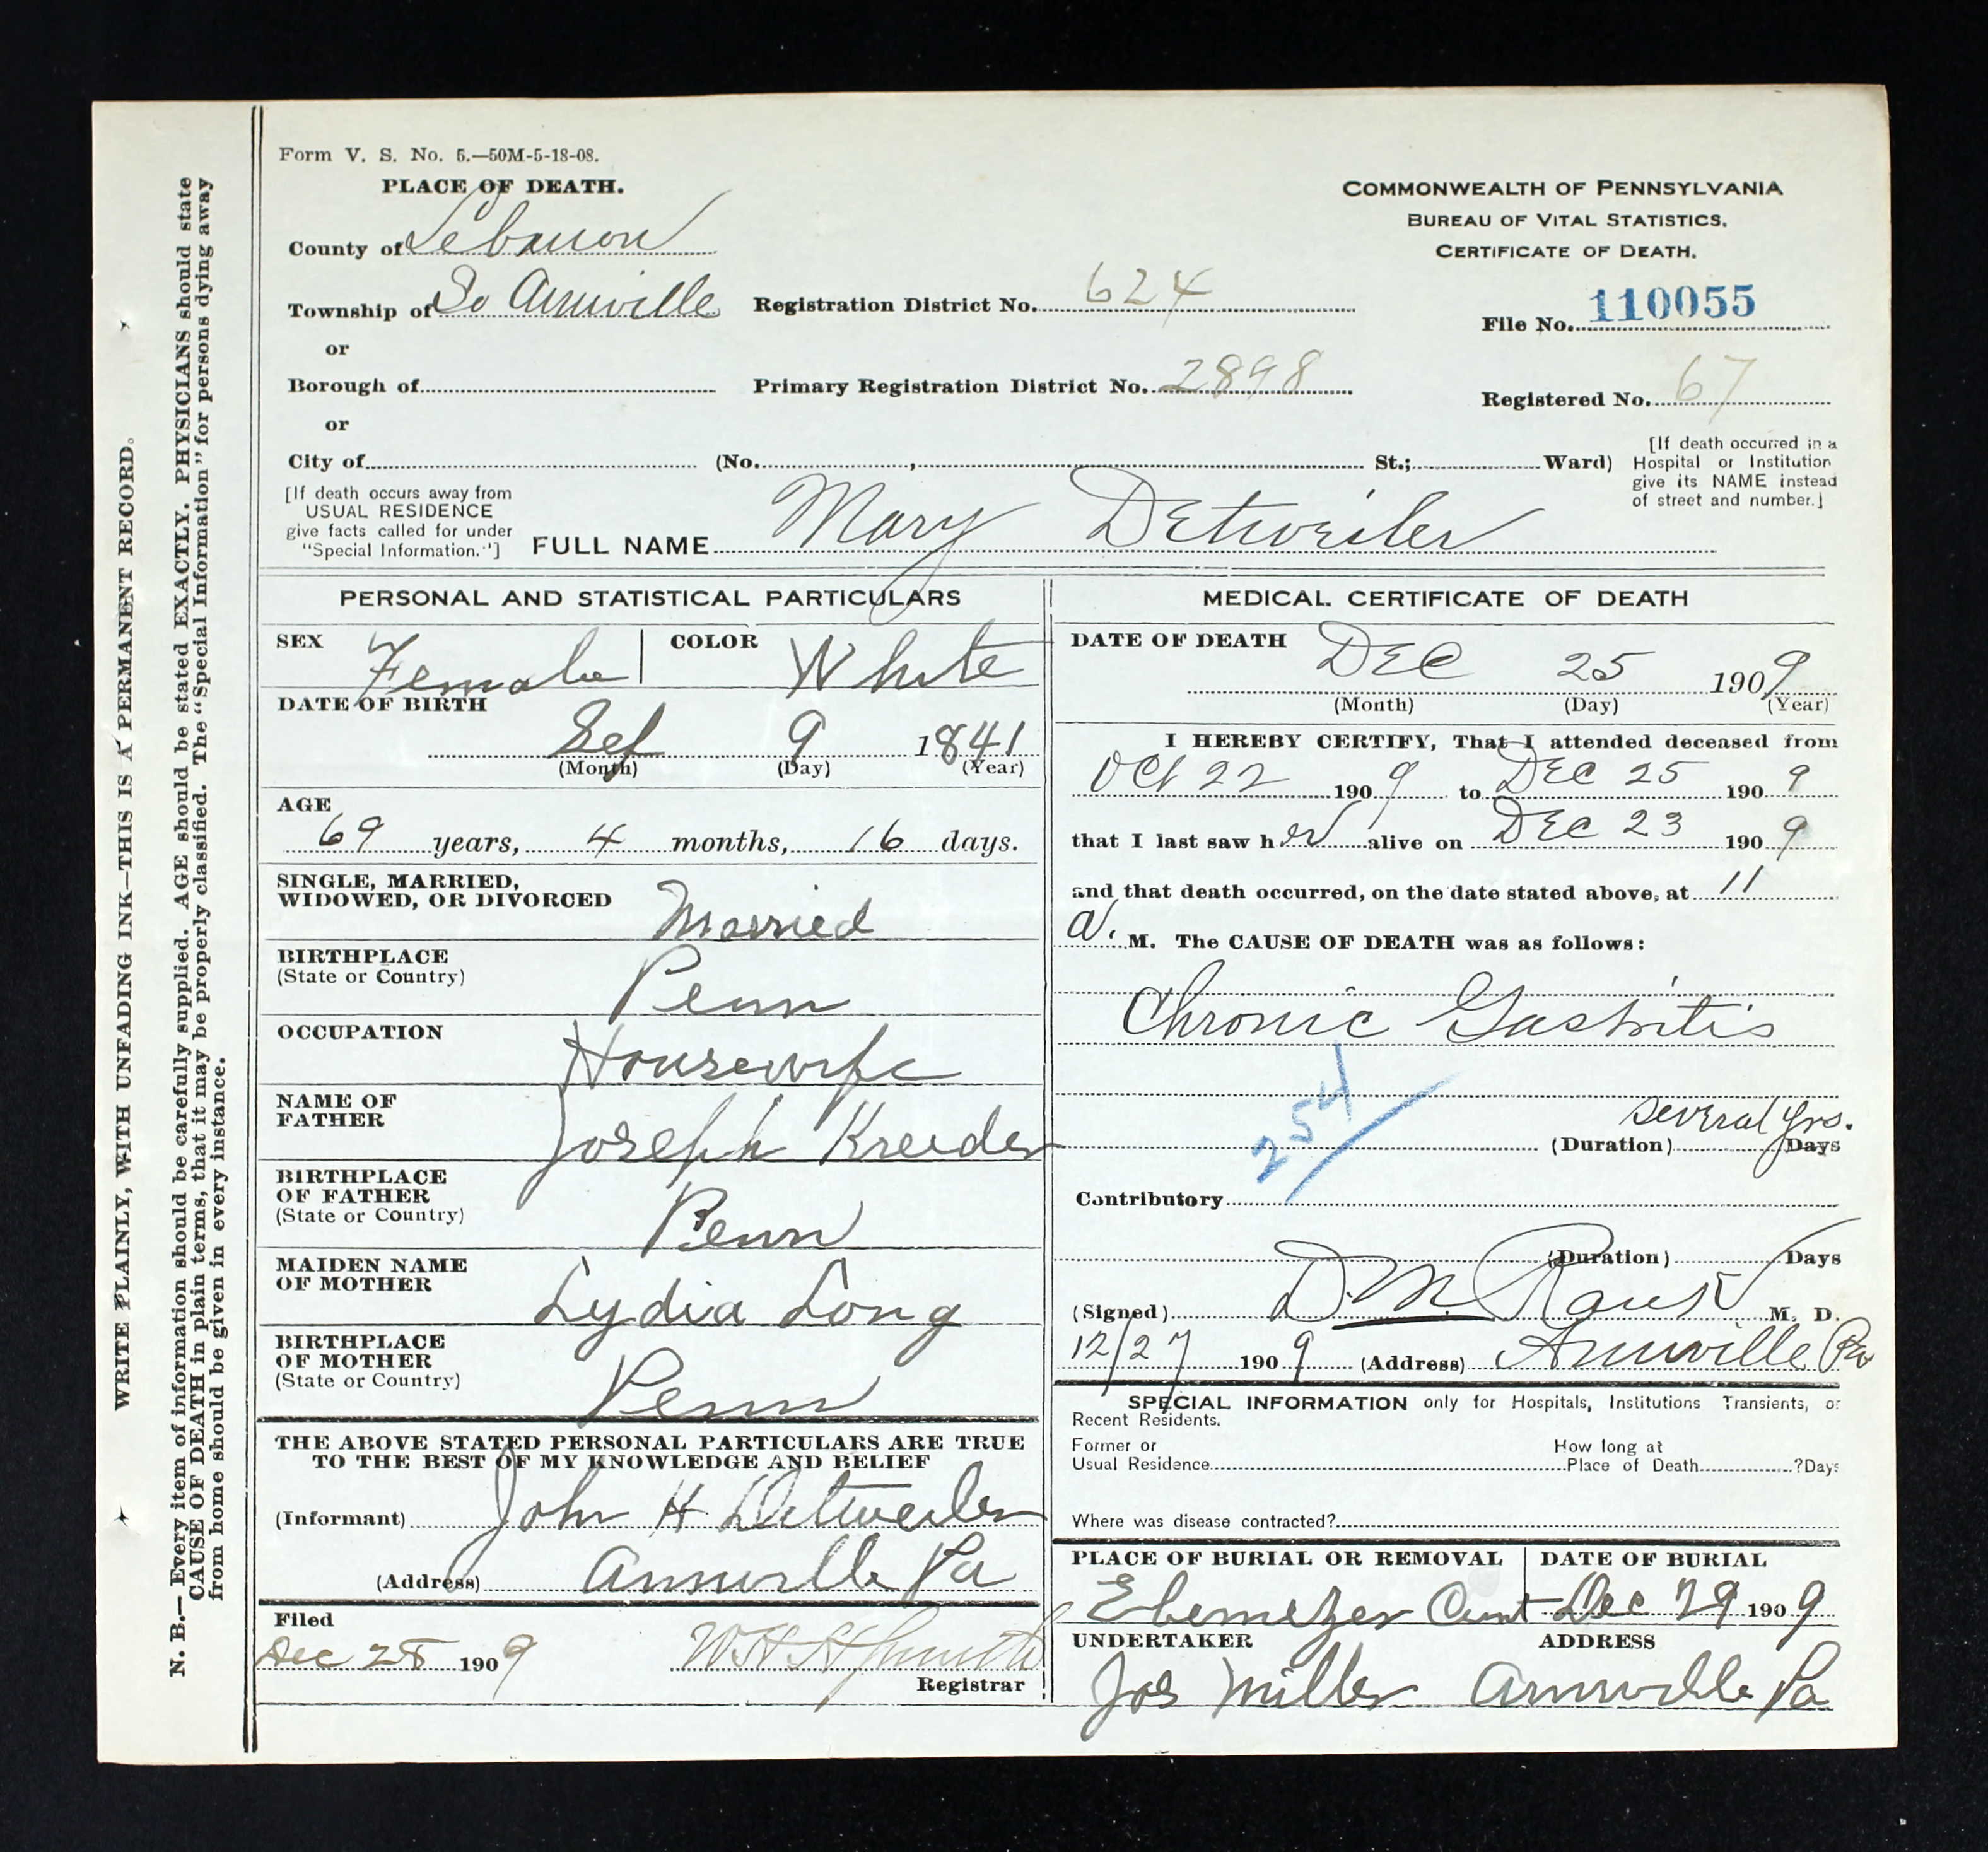 Form V. S. No. 5.—50M-5-18-08.
PLACE OF DEATH.
County of Lebanon
Township of So Annville
or
Borough of
or
City of (No. , St.; Ward)
Registration District No. 624
Primary Registration District No. 2898
COMMONWEALTH OF PENNSYLVANIA
BUREAU OF VITAL STATISTICS.
CERTIFICATE OF DEATH.
File No. 110055
Registered No. 67
[If death occurred in a
Hospital or Institution
give its NAME instead
of street and number.]
[If death occurs away from
USUAL RESIDENCE
give facts called for under
"Special Information."]
FULL NAME Mary Detweiler
PERSONAL AND STATISTICAL PARTICULARS
SEX Female
COLOR White
DATE OF BIRTH
Sep 9 1841
(Month) (Day) (Year)
AGE
69 years, 4 months, 16 days.
SINGLE, MARRIED,
WIDOWED, OR DIVORCED Married
BIRTHPLACE
(State or Country) Penn
OCCUPATION
Housewife
NAME OF
FATHER Joseph Kreider
BIRTHPLACE
OF FATHER
(State or Country) Penn
MAIDEN NAME
OF MOTHER Lydia Long
BIRTHPLACE
OF MOTHER
(State or Country) Penn
THE ABOVE STATED PERSONAL PARTICULARS ARE TRUE
TO THE BEST OF MY KNOWLEDGE AND BELIEF
(Informant) John H Detweiler
(Address) Annville Pa
Filed
Dec 28 1909 W H H Smith
Registrar
MEDICAL CERTIFICATE OF DEATH
DATE OF DEATH
DEC 25 1909
(Month) (Day) (Year)
I HEREBY CERTIFY, That I attended deceased from
Oct 22 1909 to DEC 25 1909
that I last saw her alive on DEC 23 1909
and that death occurred, on the date stated above, at 11
a. M. The CAUSE OF DEATH was as follows:
Chronic Gastritis
254
several yrs.
(Duration) Days
Contributory
(Duration) Days
(Signed) D. M. Rank M. D.
12/27 1909 (Address) Annville Pa
SPECIAL INFORMATION only for Hospitals, Institutions Transients, or
Recent Residents.
Former or
Usual Residence
How long at
Place of Death ?Days
Where was disease contracted?
PLACE OF BURIAL OR REMOVAL
Ebenezer Cemt
DATE OF BURIAL
Dec 29 1909
UNDERTAKER
Jos Miller
ADDRESS
Annville Pa
WRITE PLAINLY, WITH UNFADING INK—THIS IS A PERMANENT RECORD.
N. B.—Every item of information should be carefully supplied. AGE should be stated EXACTLY. PHYSICIANS should state
CAUSE OF DEATH in plain terms, that it may be properly classified. The "Special Information" for persons dying away
from home should be given in every instance.